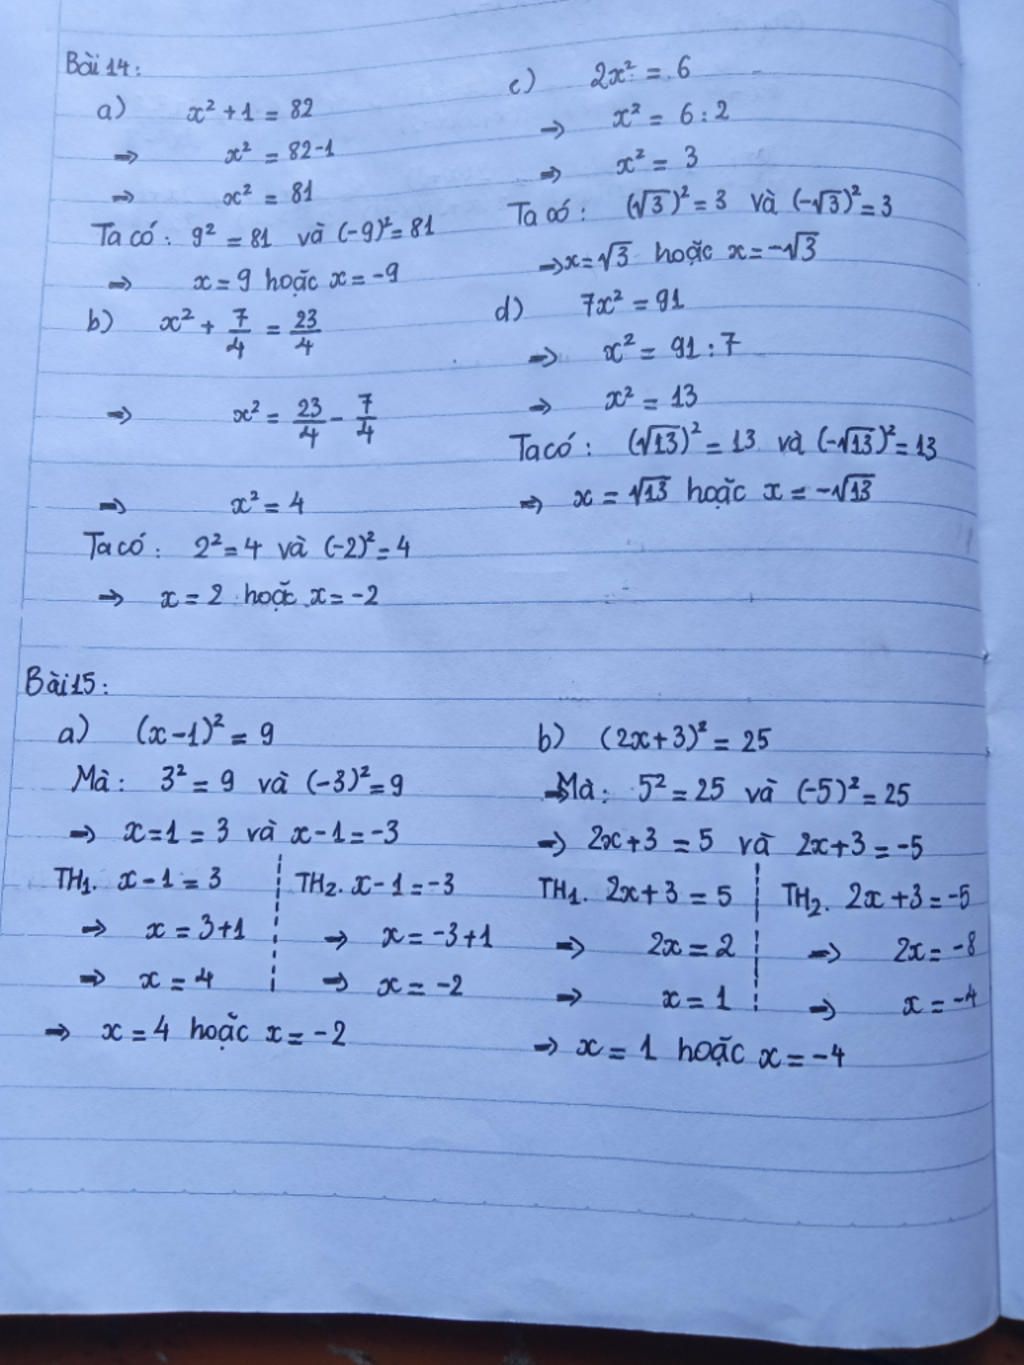 Bài 14:
a) x² + 1 = 82
⇒ x² = 82-1
⇒ x² = 81
Ta có: 9² = 81 và (-9)² = 81
⇒ x = 9 hoặc x = -9
b) x² + 7/4 = 23/4
⇒ x² = 23/4 - 7/4
⇒ x² = 4
Ta có: 2² = 4 và (-2)² = 4
⇒ x = 2 hoặc x = -2
c) 2x² = 6
⇒ x² = 6 : 2
⇒ x² = 3
Ta có: (√3)² = 3 và (-√3)² = 3
⇒ x = √3 hoặc x = -√3
d) 7x² = 91
⇒ x² = 91 : 7
⇒ x² = 13
Ta có: (√13)² = 13 và (-√13)² = 13
⇒ x = √13 hoặc x = -√13
Bài 15:
a) (x-1)² = 9
Mà: 3² = 9 và (-3)² = 9
⇒ x=1 = 3 và x-1 = -3
TH1. x-1 = 3
⇒ x = 3+1
⇒ x = 4
TH2. x-1 = -3
⇒ x = -3+1
⇒ x = -2
⇒ x = 4 hoặc x = -2
b) (2x+3)² = 25
⇒Mà: 5² = 25 và (-5)² = 25
⇒ 2x+3 = 5 và 2x+3 = -5
TH1. 2x+3 = 5
⇒ 2x = 2
⇒ x = 1
TH2. 2x+3 = -5
⇒ 2x = -8
⇒ x = -4
⇒ x = 1 hoặc x = -4